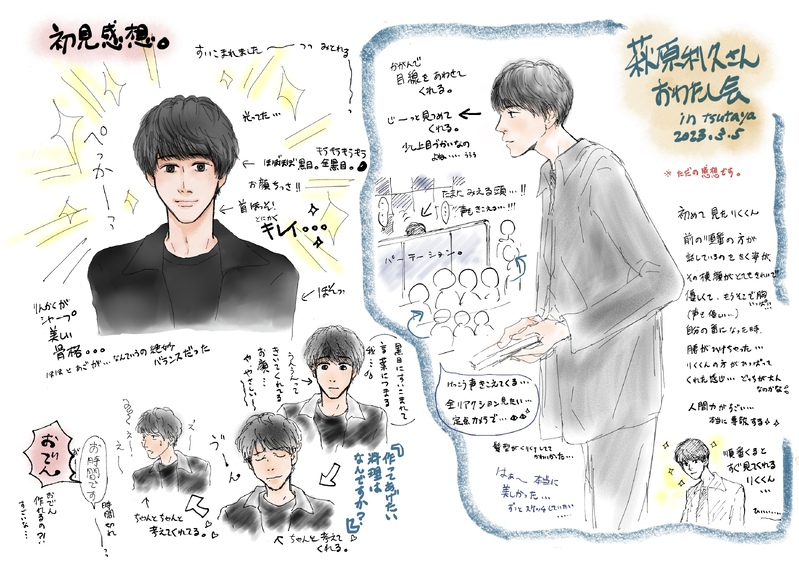 初見感想。
すいこまれました
っっ みとれる
光ってた…
ぺっかーっ
もうもうもうもう
ほぼほぼ黒目。全黒目。
お顔ちっさ!!
首ほっそ!
とにかく
キレイ…
ぼんっ
りんかくが
シャープ
美しい
骨格…
ほほとあごが…なんていうの絶妙
バランスだった
黒目にすいこまれて
言葉につまる
私…
うんうんって
きいてくれてる
お顔…
ややさしい
『作ってあげたい
料理は
なんですか?』
ちゃんと考えて
くれる。
う〃
ん
ちゃんとちゃんと
考えてくれてる。
え
え
お時間です
時間切れ
おでん
おでん
作れるの?!
すごいな…
萩原利久さん
おわたし会
in tsutaya
2023.3.5
※ただの感想です。
おがんで
目線をあわせて
くれる。
じーっと見つめて
くれる。
少し上目づかいなの
よね…
たまにみえる頭…!!
声もきこえる…!!
パーテーション。
けっこう声きこえてくる…
全リアクション見たい…
定点カメラで…
髪型がくりくりしてて
かわいかった…
はぁ〜本当に
美しかった…
ずっとスケッチしていたい…
初めて見たりくくん
前の順番の方が
話しているのをきく姿が、
その横顔がとてもきれいで
優しくて、もうそこで胸
いっぱい!!
(声も優しい…)
自分の番になった時、
腰がひけちゃった…
りくくんの方がひっぱって
くれた感じ…どっちが大人
なのかな
人間力がすごい…
本当に尊敬する
順番くると
すぐ見てくれる
りくくん
…